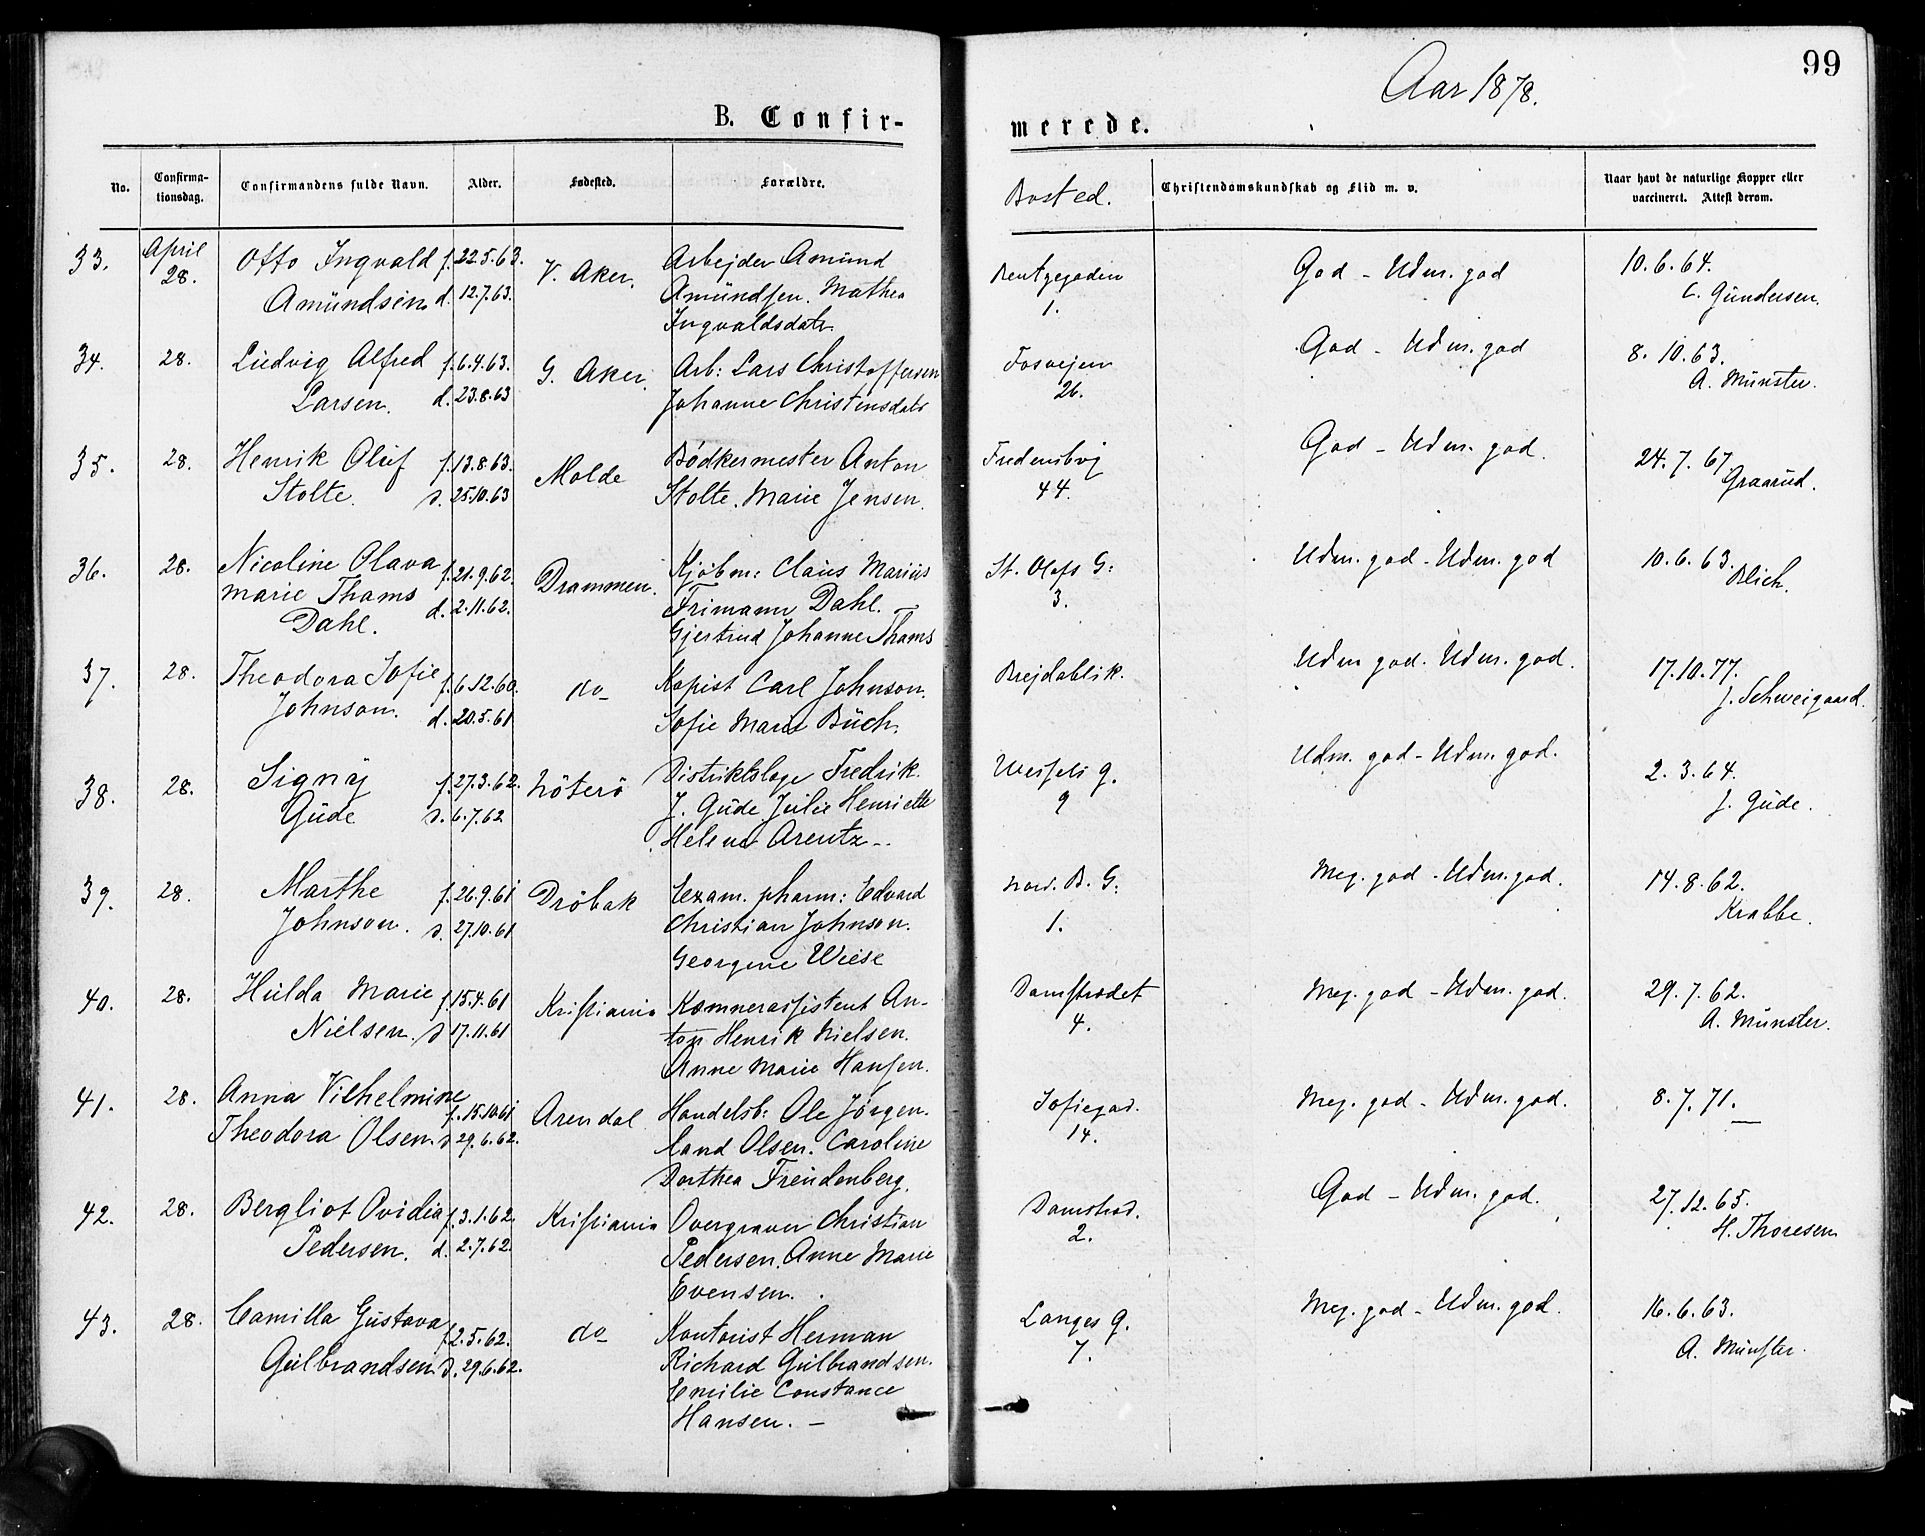 99
Aar 1878.
B. Confir-
merede.
No.
Confirma-
tionsdag.
Confirmandens fulde Navn.
Alder.
Fødested.
Forældre.
Bosted.
Christendomskundskab og Flid m. v.
Naar havt de naturlige Kopper eller
vaccineret. Attest derom.
33. April 28. Otto Ingvald f. 22.5.63. V. Aker. Arbejder Amund
Amundsen d. 12.7.63. Amundsen. Mathea
Ingvaldsdatr.
1. God - Udm. god 10.6.64.
C. Gundersen.
34. 28. Ludvig Alfred f. 6.4.63. G. Aker. Arb: Lars Christoffersen
Larsen. d. 23.8.63 Johanne Christensdatr
Fosvejen
26. God - Udm. god 8.10.63.
A. Münster.
35. 28. Henrik Oluf f. 13.8.63. Molde Bödkermester Anton
Stolte. d. 25.10.63 Stolte. Marie Jensen.
Fredensbvj
44. God - Udm. god. 24.7.67.
Graarud.
36. 28. Nicoline Olava f. 21.9.62. Drammen. Kjøbm: Claus Marius
Marie Thams d. 2.11.62. Frimann Dahl.
Dahl. Gjertrud Johanne Thams
St. Olafs G:
3. Udm. god - Udm. god 10.6.63.
Blich.
37. 28. Theodora Sofie f. 6.12.60. do Kopist Carl Johnson.
Johnson. d. 20.5.61 Sofie Marie Büch.
Brejdablik. Udm god. Udm. god. 17.10.77.
J. Schweigaard.
38. 28. Signy f. 27.3.62. Nöterö Distriktslæge Fredrik
Gude d. 6.7.62 J. Gude Julie Henriette
Helene Arentz -
Wessels g.
9 Udm. god - Udm. god. 2.3.64.
J. Gude.
39. 28. Marthe f. 26.9.61 Dröbak Exam. pharm: Edvard
Johnson. d. 27.10.61 Christian Johnson.
Georgine Wiese
Nord. B. G:
1. Meg. god - Udm. god. 14.8.62.
Krabbe.
40. 28. Hulda Marie f. 15.4.61 Kristiania Kæmnerassistent An-
Nielsen. d. 17.11.61 ton Henrik Nielsen.
Anne Marie Hansen.
Damstrædet
4. Meg. god - Udm. god. 29.7.62.
A. Münster.
41. 28. Anna Vilhelmine f. 15.10.61 Arendal Handelsb: Ole Jørgen.
Theodora Olsen. d. 29.6.62. Olsen. Caroline
Dorthea Freudenberg.
Sofiegad.
14. Meg. god - Udm. god. 8.7.71. —
42. 28. Bergliot Ovidia f. 3.1.62. Kristiania Overgraver Christian
Pedersen. d. 2.7.62. Pedersen. Anne Marie
Evensen.
Damstræd.
2. God - Udm. god. 27.12.65.
H. Thoresen
43. 28. Camilla Gustava f. 2.5.62. do Kontorist Herman
Gulbrandsen d. 29.6.62. Richard Gulbrandsen.
Emilie Constance
Hansen. -
Langes g.
7. Meg. god - Udm. god. 16.6.63.
A. Münster.